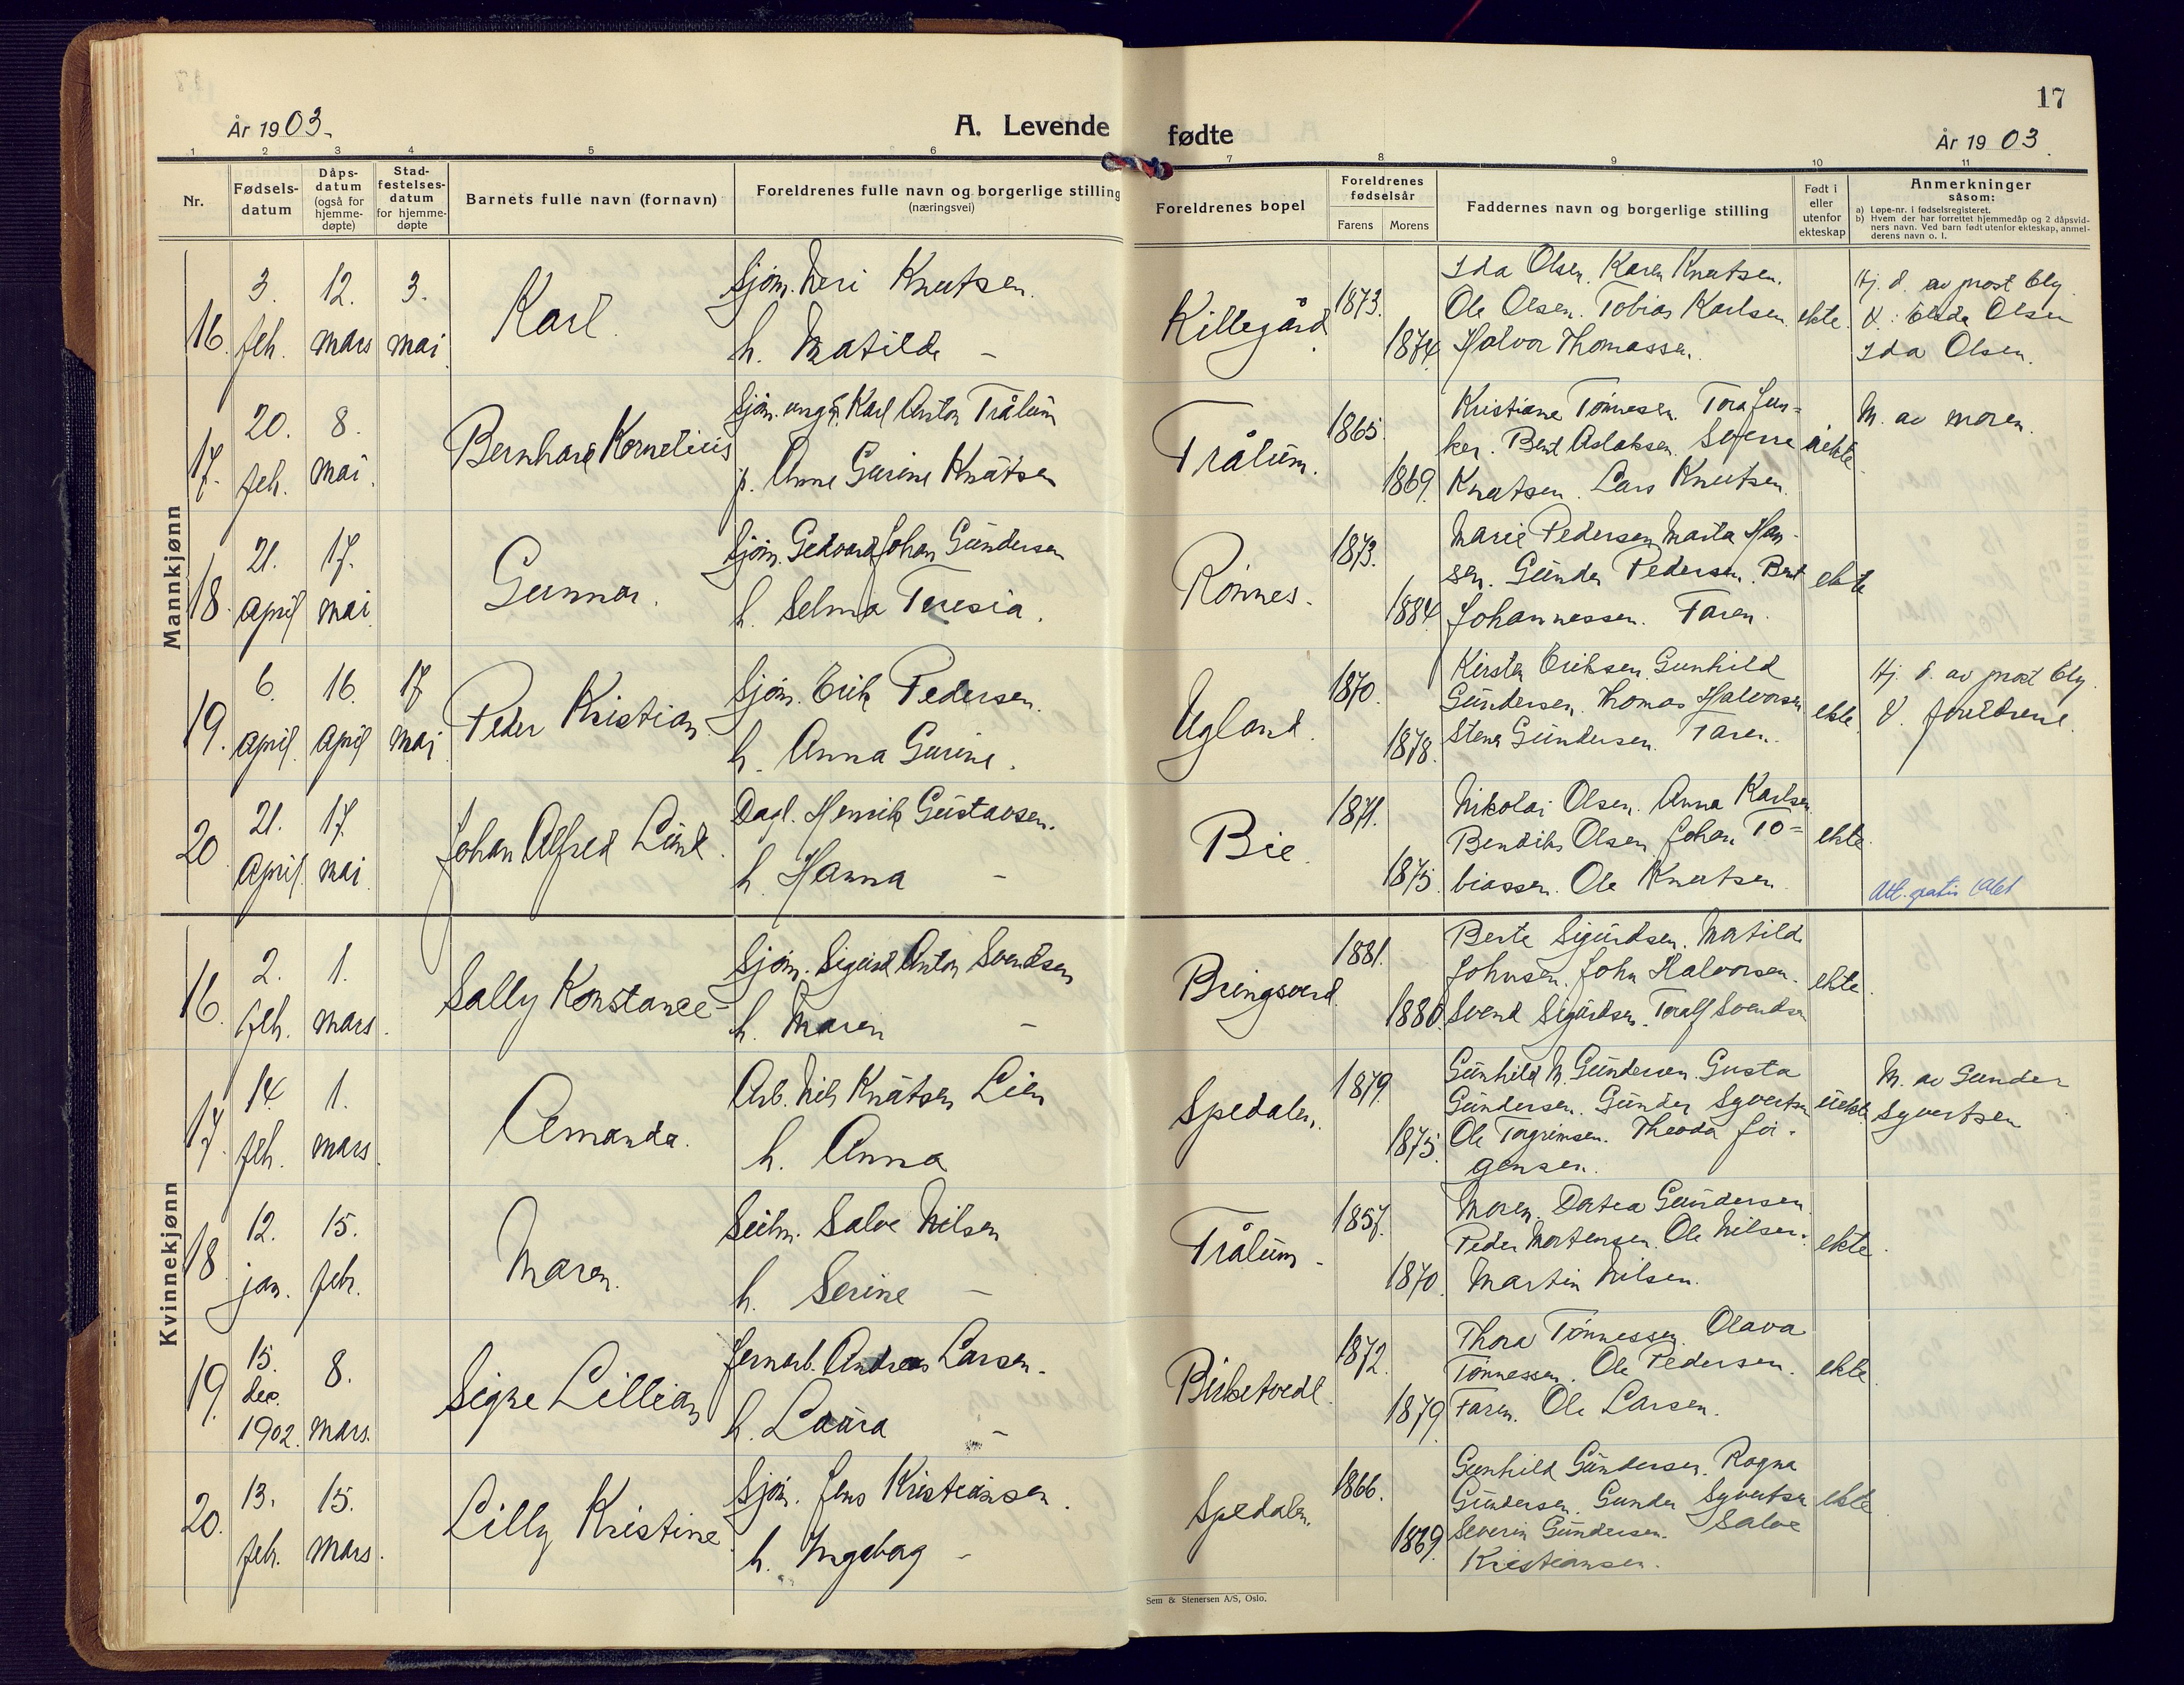 17
År 1903.
A. Levende fødte
År 1903.
1 2 3 4 5 6 7 8 9 10 11
Nr.
Fødsels-
datum
Dåps-
datum
(også for
hjemme-
døpte)
Stad-
festelses-
datum
for hjemme-
døpte
Barnets fulle navn (fornavn)
Foreldrenes fulle navn og borgerlige stilling
(næringsvei)
Foreldrenes bopel
Foreldrenes
fødselsår
Farens Morens
Faddernes navn og borgerlige stilling
Født i
eller
utenfor
ekteskap
Anmerkninger
såsom:
a) Løpe-nr. i fødselsregisteret.
b) Hvem der har forrettet hjemmedåp og 2 dåpsvid-
ners navn. Ved barn født utenfor ekteskap, anmel-
derens navn o. l.
Mannkjønn
16.
3.
feb.
12.
mars
3.
mai.
Karl.
Sjøm. Neri Knutsen.
h. Matilde –
Killegård.
1873.
1874.
Ida Olsen. Karen Knutsen.
Ole Olsen. Tobias Karlsen.
Halvor Thomassen.
ekte.
Hj. d. av prost
Olsen
Ida Olsen.
17.
20.
feb.
8.
mai.
Bernhard Kornelius
Sjøm. ungk. Karl Anton Trålum
p. Anne Gurine Knutsen
Trålum.
1865.
1869.
Kristiane Tønnesen. Tora Jun=
ker. Bent Aslaksen. Sverre
Knutsen. Lars Knutsen.
uekte.
M. av moren.
18.
21.
april
17.
mai.
Gunnar.
Sjøm. Gedvard Johan Gundersen
h. Selma Teresia.
Rønnes.
1873.
1884.
Marie Pedersen Marta Han-
sen. Gunder Pedersen. Bent
Johannessen. Faren.
ekte
19.
6.
april.
16.
april
17
mai
Peder Kristian
Sjøm. Erik Pedersen.
h. Anna Gurine.
Ugland.
1870.
1878.
Kirsten Eriksen. Gunhild
Gundersen. Thomas Halvorsen
Stener Gundersen. Faren.
ekte.
Hj. d. av prost
V. foreldrene.
20.
21.
april.
17.
mai.
Johan Alfred Lund.
Dagl. Henrik Gustavsen.
h. Hanna –
Bie.
1871.
1875.
Nikolai Olsen. Anna Karlsen
Bendik Olsen. Johan To=
biassen. Ole Knutsen.
ekte.
Att. gratis
Kvinnekjønn
16.
2.
feb.
1.
mars.
Sally Konstance
Sjøm. Sigurd Anton Svendsen
h. Maren –
Bringsverd.
1881.
1880.
Berte Sigurdsen. Matilde
Johnsen. John Halvorsen.
Svend Sigurdsen. Toralf Svendsen
ekte.
17.
14.
feb.
1.
mars.
Amanda.
Arb. Nils Knutsen Lien
h. Anna
Spedalen.
1879.
1875.
Gunhild M. Gundersen. Gusta
Gundersen. Gunder Syvertsen
Ole Torgrimsen. Theoda Jør-
gensen.
uekte.
M. av Gunder
Syvertsen
18.
12.
jan.
15.
febr.
Maren.
Salve Nilsen
h. Serine –
Trålum.
1857.
1870.
Moren. Dortea Gundersen.
Peder Mortensen. Ole Nilsen.
Martin Nilsen.
ekte.
19.
15.
des.
1902.
8.
mars.
Signe Lillian
Jernarb. Andreas Larsen.
h. Laura –
Birketvedt.
1872.
1879.
Thora Tønnessen. Olava
Tønnessen. Ole Pedersen.
Faren. Ole Larsen.
ekte.
20.
13.
feb.
15.
mars.
Lilly Kristine.
Sjøm. Jens Kristiansen.
h. Ingeborg –
Spedalen.
1866.
1869.
Gunhild Gundersen. Ragna
Gundersen. Gunder Syvertsen
Severin Gundersen. Salve
Kristiansen.
ekte.
Sem & Stenersen A/S, Oslo.